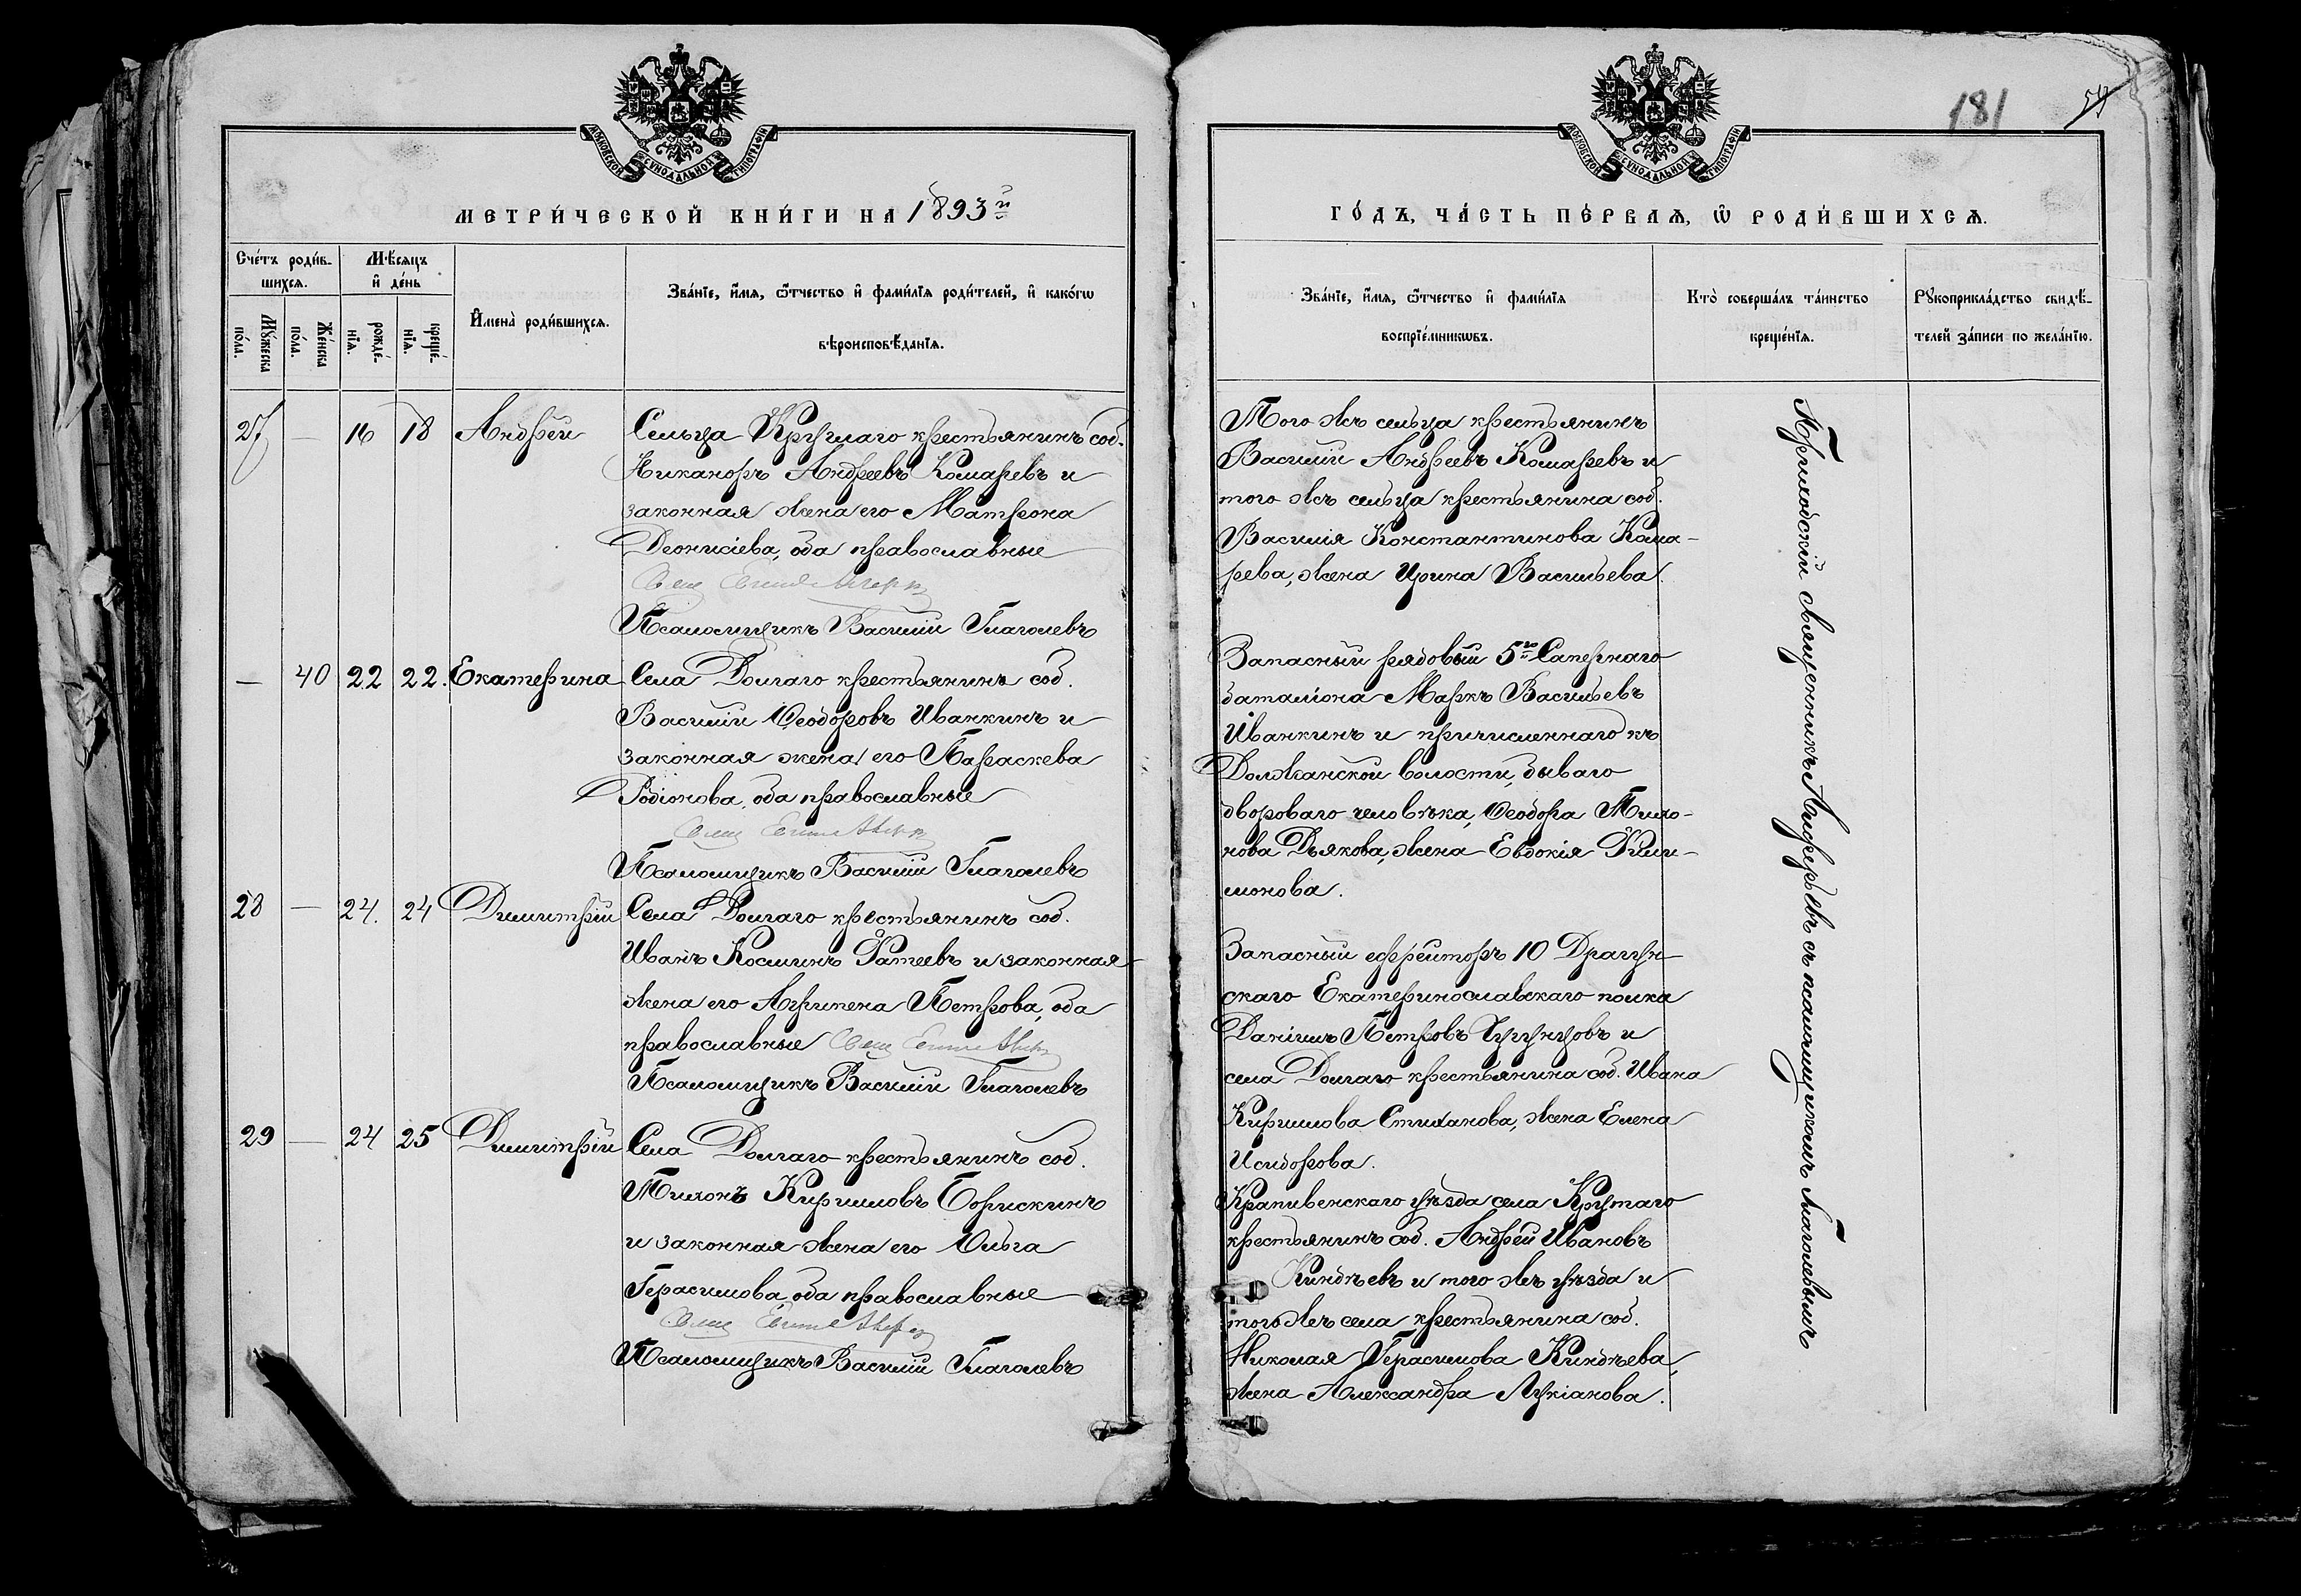 181
МОСКОВСКОЙ СУНОДАЛЬНОЙ ТИПОГРАФІИ
МОСКОВСКОЙ СУНОДАЛЬНОЙ ТИПОГРАФІИ
МЕТРИ́ЧЕСКОЙ КНИ́ГИ НА 1893й
ГО́ДЪ, ЧА́СТЬ ПЕ́РВАѦ, Ѡ҆ РОДИ́ВШИХСѦ.
Сче́тъ роди́в-
шихсѧ.
Мѣ́сѧцъ
и҆ де́нь
Мꙋ́жеска
по́ла.
Же́нска
по́ла.
рожде́-
нїѧ.
креще́-
нїѧ.
И҆мена̀ роди́вшихсѧ.
Зва́нїе, и҆́мѧ, ѻ҆́тчество и҆ фами́лїѧ роди́телей, и҆ како́гѡ
вѣроисповѣ́данїѧ.
Зва́нїе, и҆́мѧ, ѻ҆́тчество и҆ фами́лїѧ
воспрїе́мникѡвъ.
Кто̀ соверша́лъ та́инство
креще́нїѧ.
Рꙋкоприкла́дство свидѣ́-
телей за́писи по жела́нїю.
27 — 16 18 Андрей
Сельца Круглаго крестьянинъ соб.
Никаноръ Андреевъ Комаревъ и
законная жена его Матрона
Деонисіева, оба православные
Псаломщикъ Василій Глаголевъ
Того же сельца крестьянинъ
Василій Андреевъ Комаревъ и
того же сельца крестьянина соб.
Василія Константинова Кома-
рева, жена Ирина Васильева.
— 40 22 22. Екатерина
Села Долгаго крестьянинъ соб.
Василій Ѳеодоровъ Иванкинъ и
законная жена его Параскева
Родіонова, оба православные
Псаломщикъ Василій Глаголевъ
Запасный рядовый 5го Сапернаго
баталіона Маркъ Васильевъ
Иванкинъ и причисленнаго къ
Должанской волости, бываго
двороваго человѣка, Ѳеодора Тихо-
нова Дьякова, жена Евдокія Фили-
монова.
28 — 24. 24 Димитрій
Села Долгаго крестьянинъ соб.
Иванъ Косминъ Фатеевъ и законная
жена его Агрипена Петрова, оба
православные
Псаломщикъ Василій Глаголевъ
Запасный ефрейторъ 10 Драгун-
скаго Екатеринославскаго полка
Даніилъ Петровъ и
села Долгаго крестьянина соб. Ивана
Кирилова Стиханова, жена Елена
Исидорова.
29 — 24 25 Димитрій
Села Долгаго крестьянинъ соб.
Тихонъ Кириловъ Борискинъ
и законная жена его Ольга
Герасимова, оба православные
Псаломщикъ Василій Глаголевъ
Крапивенскаго уѣзда села Крутаго
крестьянинъ соб. Андрей Ивановъ
Киндѣевъ и того же уѣзда и
того же села крестьянина соб.
Николая Герасимова Киндѣева,
жена Александра Лукіанова.
Приходскій священникъ съ псаломщикомъ Глаголевымъ